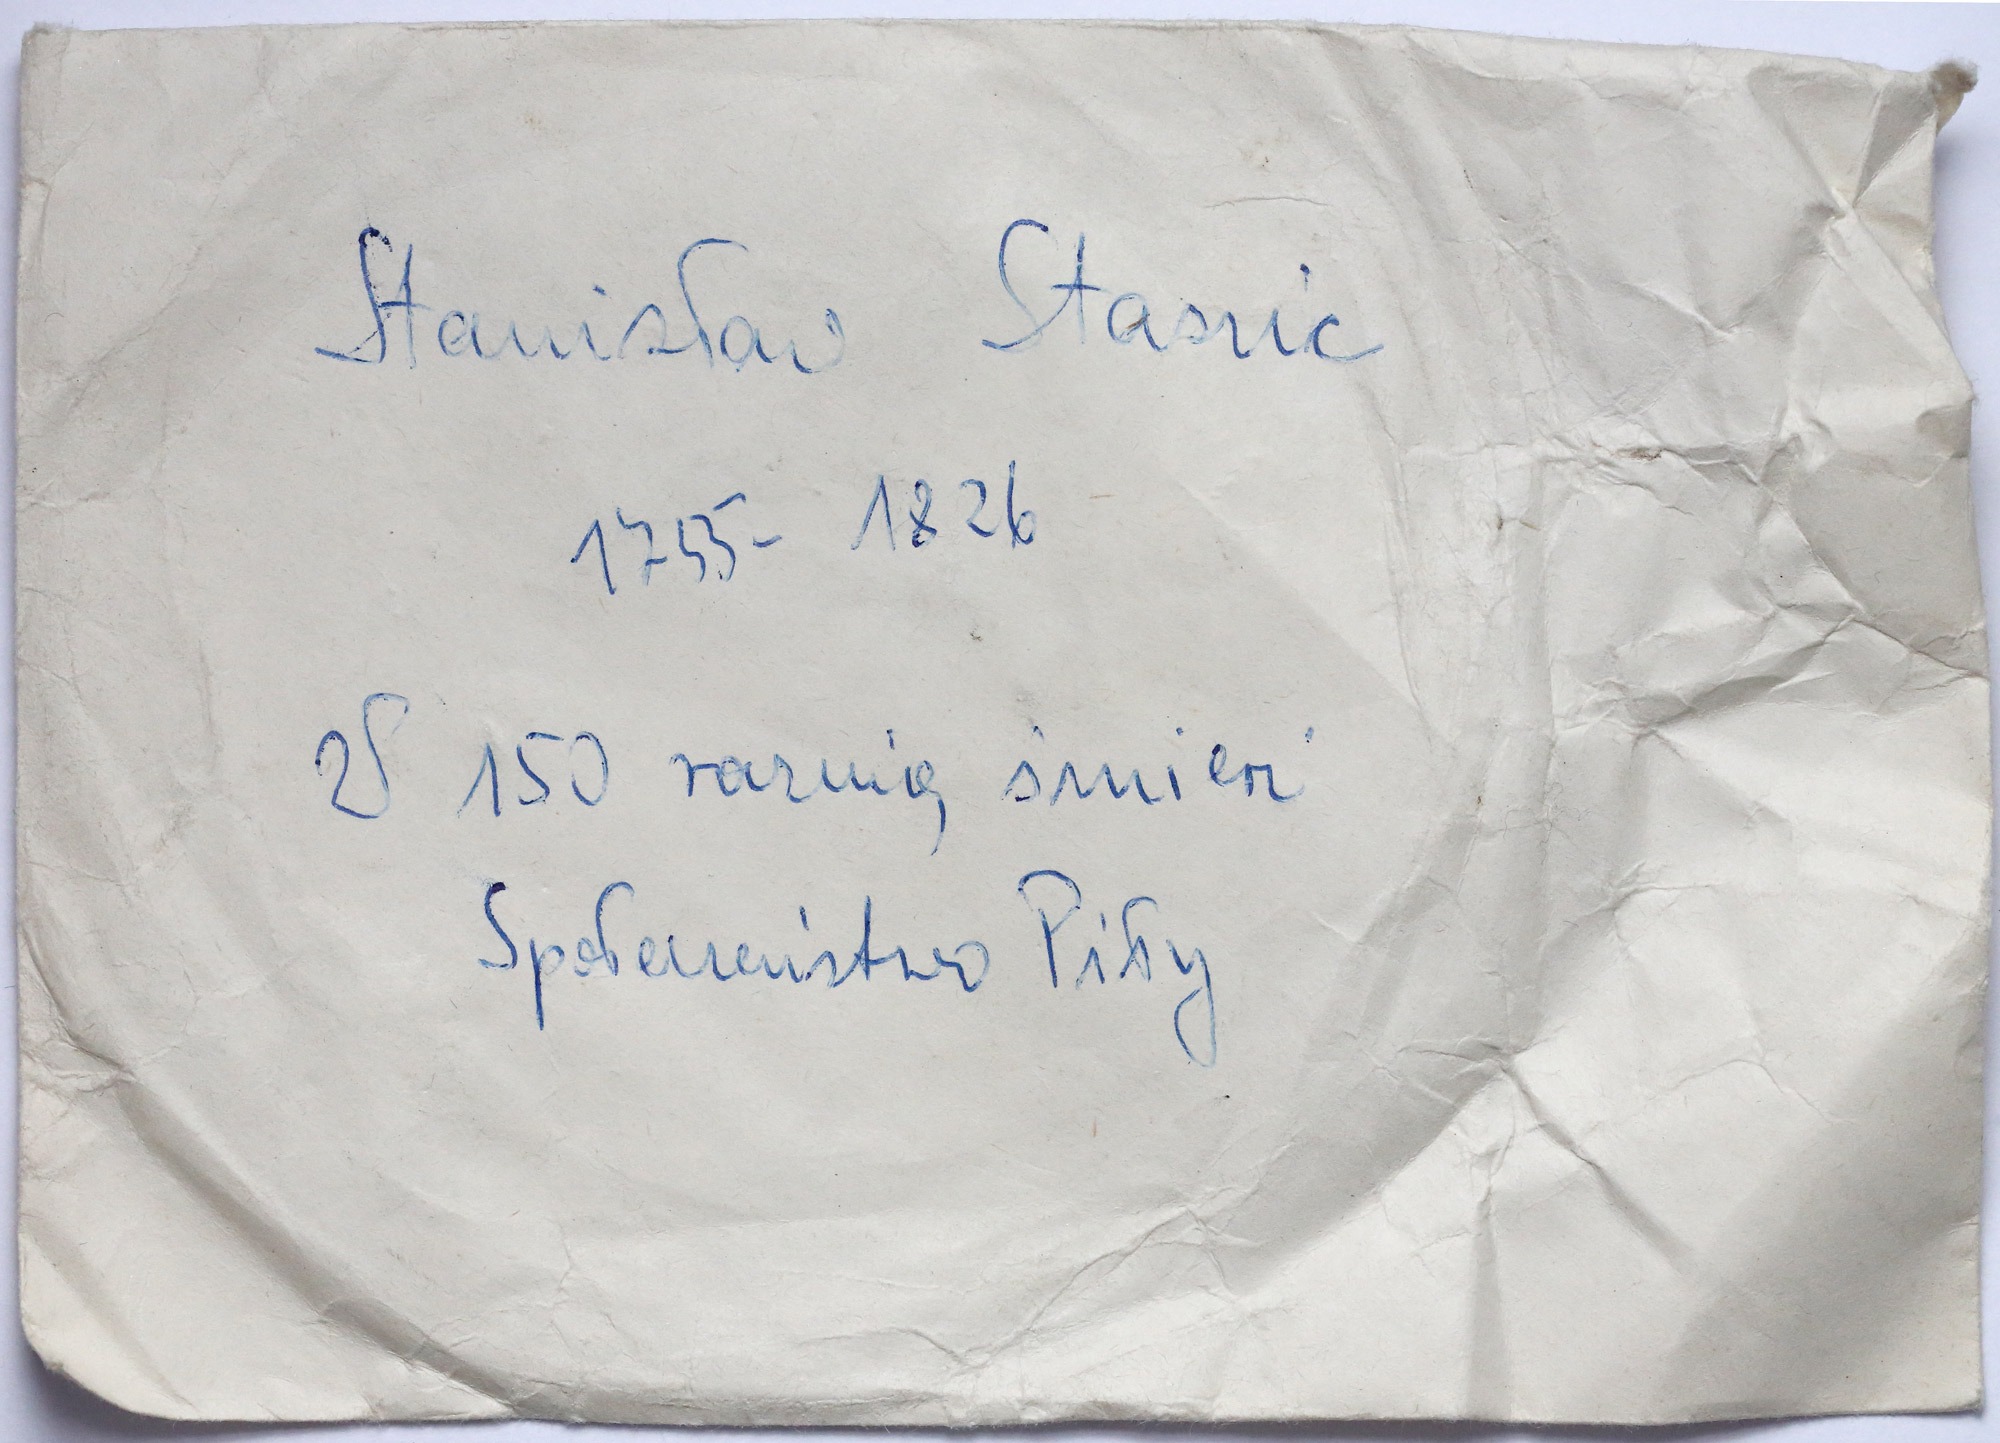 Stanisław Staszic
1755- 1826
W 150 rocznię śmierci
Społeczeństwo Piły